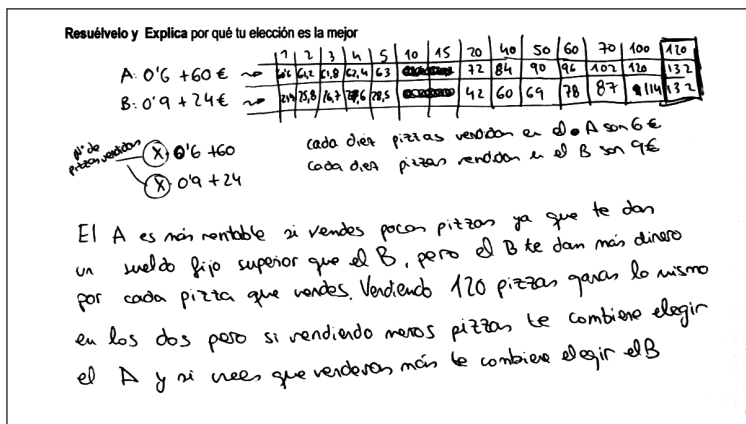 Resuélvelo y Explica por qué tu elección es la mejor
1 2 3 4 5 10 15 20 40 50 60 70 100 120
A: 0'6 + 60 € 60'6 61,2 61,8 62,4 63 72 84 90 96 102 120 132
B: 0'9 + 24 € 25,8 26,7 28,5 42 60 69 78 87 114 132
nº de pizzas vendidas
X 0'6 + 60
X 0'9 + 24
cada diez pizzas vendidas en el A son 6 €
cada diez pizzas vendidas en el B son 9€
El A es más rentable si vendes pocas pizzas ya que te dan
un sueldo fijo superior que el B, pero el B te dan más dinero
por cada pizza que vendes. Vendiendo 120 pizzas ganas lo mismo
en los dos pero si vendiendo menos pizzas te combiene elegir
el A y si crees que venderas más te combiene elegir el B